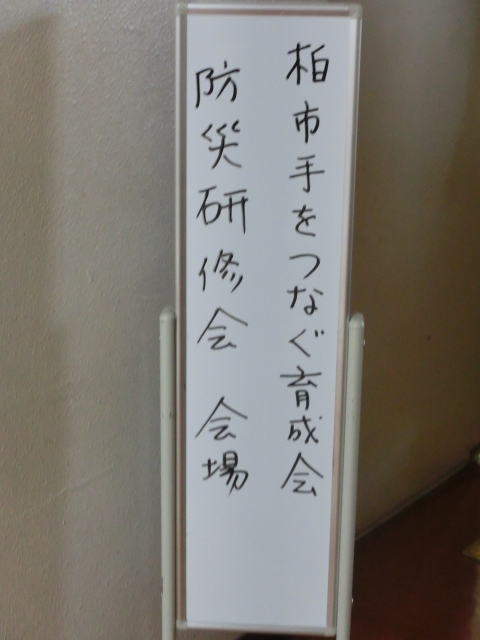 柏市手をつなぐ育成会
防災研修会 会場